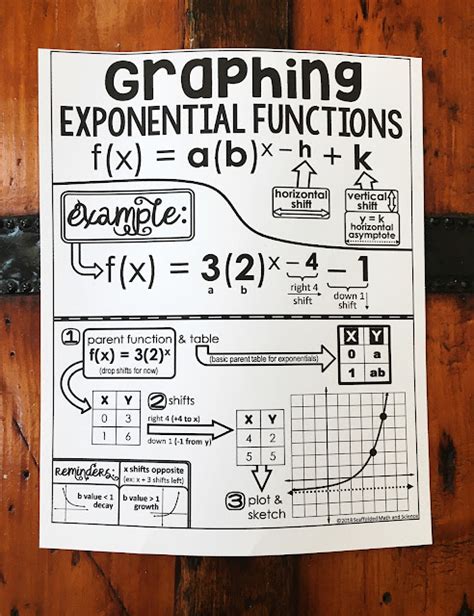 Graphing
EXPONENTIAL FUNCTIONS
f(x) = a(b)^x-h + k
horizontal
shift
vertical
shift
y = k
horizontal
asymptote
example:
f(x) = 3(2)^x-4 - 1
a b
right 4
shift
down 1
shift
1 parent function & table
f(x) = 3(2)^x
(drop shifts for now)
(basic parent table for exponentials)
X Y
0 a
1 ab
X Y
0 3
1 6
2 shifts
right 4 (+4 to x)
down 1 (-1 from y)
X Y
4 2
5 5
3 plot &
sketch
Reminders:
x shifts opposite
(ex: x + 3 shifts left)
b value < 1
decay
b value > 1
growth
©2018 Scaffolded Math and Science